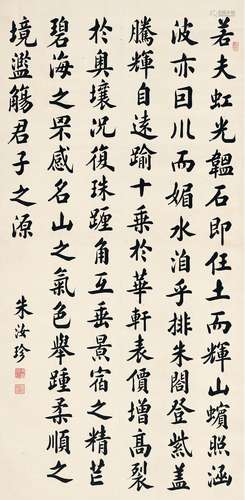 若夫虹光韞石即任土而輝山蠙照涵
波亦因川而媚水洎乎排朱閣登紫蓋
騰輝自遠踰十乘於華軒表價增高裂
於奧壤況復珠躔角互垂景宿之精芒
碧海之罘感名山之氣色舉踵柔順之
境濫觴君子之源
朱汝珍